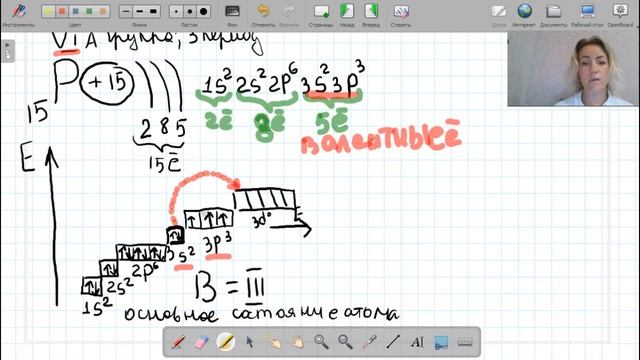 Инструменты Цвет Линии Ластик Отменить Вернуть Страницы Назад Вперёд Очистить Доска Веб Документы Рабочий стол OpenBoard
VI A группа, 3 период
15 P +15 1s² 2s² 2p⁶ 3s² 3p³
2 8 5 2ē 8ē 5ē
15ē валентные ē
E
3d⁰
3p³
3s²
2p⁶
2s²
1s²
B = III
основное состояние атома